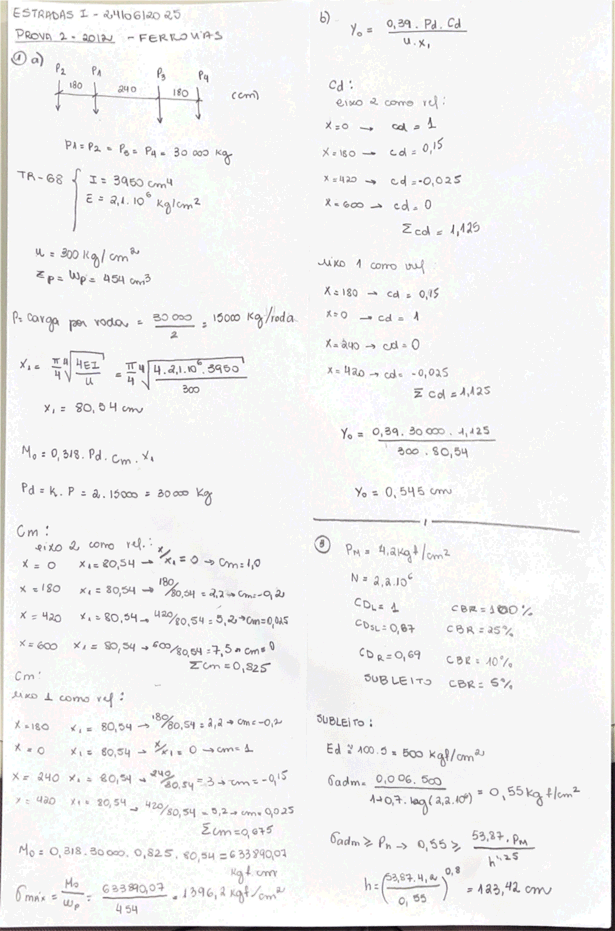 ESTRADAS I - 24/06/2025
PROVA 2 - 2012 - FERROVIAS
① a)
P2 P1 P3 P4
180 240 180 (cm)
P1 = P2 = P3 = P4 = 30 000 kg
TR-68 { I = 3950 cm⁴
E = 2,1. 10⁶ kg/cm²
u = 300 kg/cm²
Zp = Wp = 454 cm³
P = carga por roda = 30 000 / 2 = 15000 kg/roda
X₁ = π/4 ⁴√(4EI/u) = π/4 ⁴√(4.2,1.10⁶.3950/300)
X₁ = 80,54 cm
M₀ = 0,318. Pd. Cm. X₁
Pd = k. P = 2. 15000 = 30000 kg
Cm:
eixo 2 como ref.:
X = 0 X₁ = 80,54 → x/x₁ = 0 → Cm = 1,0
X = 180 X₁ = 80,54 → 180/80,54 = 2,2 → cm = -0,2
X = 420 X₁ = 80,54 → 420/80,54 = 5,2 → Cm = 0,025
X = 600 X₁ = 80,54 → 600/80,54 = 7,5 → cm = 0
Σcm = 0,825
Cm:
eixo 1 como ref:
X = 180 X₁ = 80,54 → 180/80,54 = 2,2 → cm = -0,2
X = 0 X₁ = 80,54 → x/x₁ = 0 → cm = 1
X = 240 X₁ = 80,54 → 240/80,54 = 3 → cm = -0,15
X = 420 X₁ = 80,54 → 420/80,54 = 5,2 → cm = 0,025
Σcm = 0,675
M₀ = 0,318. 30000. 0,825. 80,54 = 633890,07
kgf. cm
σmáx = M₀/Wp = 633890,07/454 = 1396,2 kgf/cm²
b)
Y₀ = 0,39. Pd. Cd / u. x₁
Cd:
eixo 2 como ref:
X = 0 → cd = 1
X = 180 → cd = 0,15
X = 420 → cd = -0,025
X = 600 → cd = 0
Σcd = 1,125
eixo 1 como ref
X = 180 → cd = 0,15
X = 0 → cd = 1
X = 240 → cd = 0
X = 420 → cd = -0,025
Σ cd = 1,125
Y₀ = 0,39. 30000. 1,125 / 300. 80,54
Y₀ = 0,545 cm
③ PM = 4,2 kgf/cm²
N = 2,2.10⁶
CDL = 1 CBR = 100%
CDSL = 0,87 CBR = 25%
CDR = 0,69 CBR = 10%
SUBLEITO CBR = 5%
SUBLEITO:
Ed ≅ 100.5 = 500 kgf/cm²
σadm = 0,006. 500 / 1+0,7. log(2,2.10⁶) = 0,55 kgf/cm²
σadm ≥ Ph → 0,55 ≥ 53,87. PM / h^1,25
h = (53,87. 4,2 / 0,55)^0,8 = 123,42 cm